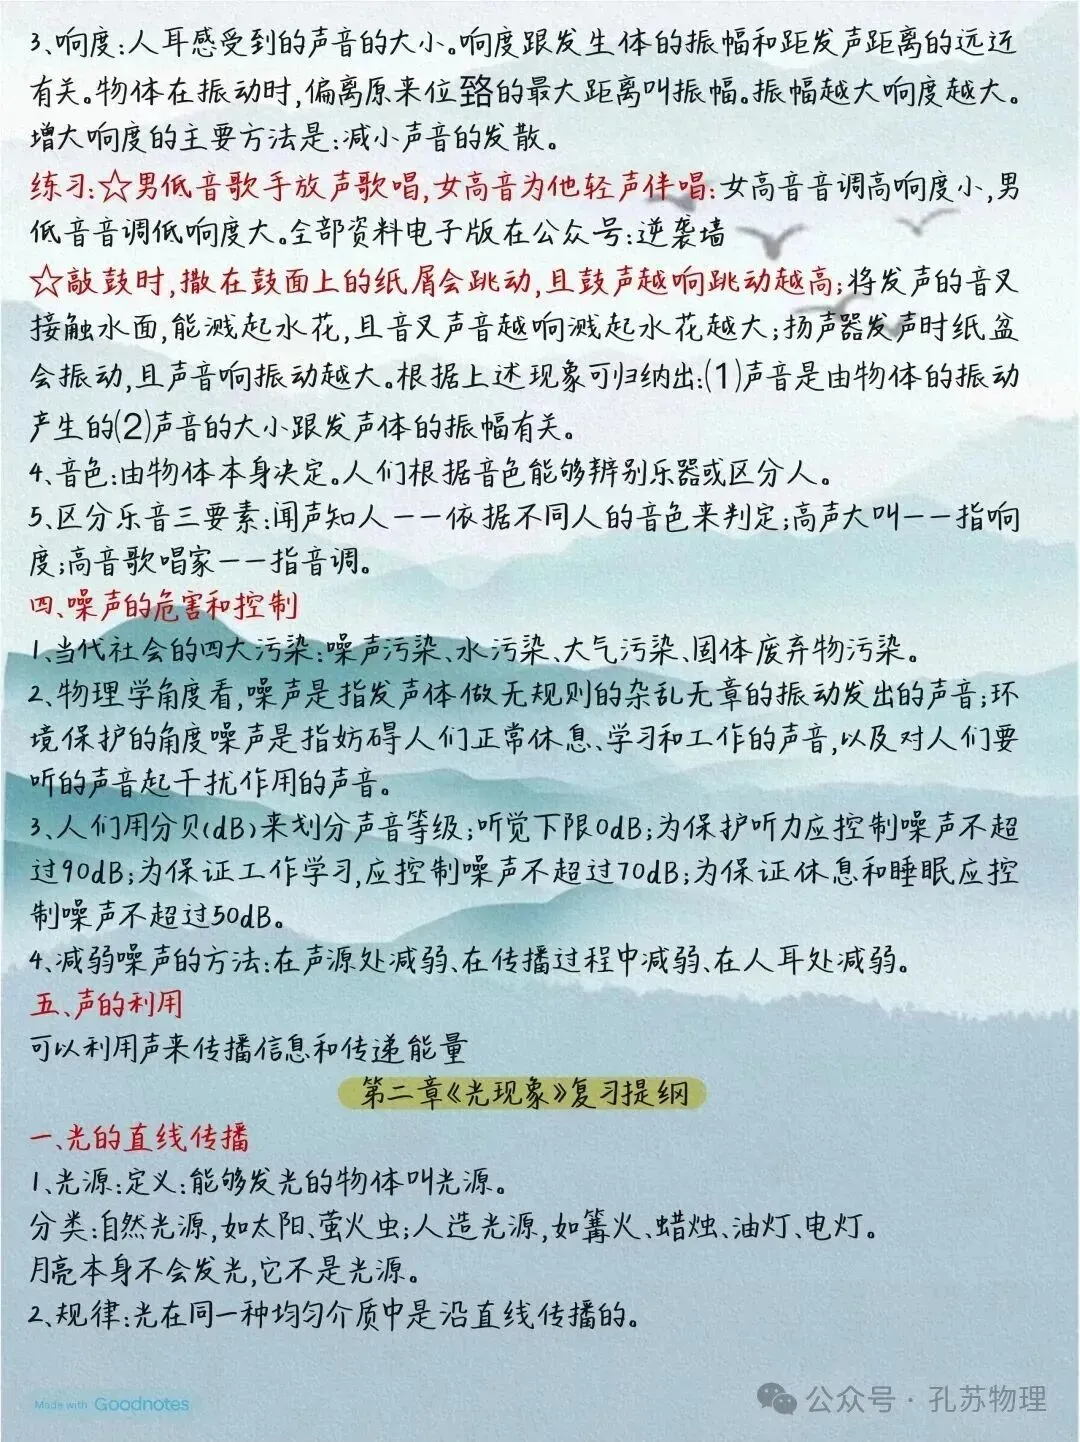 3、响度:人耳感受到的声音的大小。响度跟发生体的振幅和距发声距离的远近
有关。物体在振动时,偏离原来位臵的最大距离叫振幅。振幅越大响度越大。
增大响度的主要方法是:减小声音的发散。
练习:☆男低音歌手放声歌唱,女高音为他轻声伴唱:女高音音调高响度小,男
低音音调低响度大。全部资料电子版在公众号:逆袭墙
☆敲鼓时,撒在鼓面上的纸屑会跳动,且鼓声越响跳动越高;将发声的音叉
接触水面,能溅起水花,且音叉声音越响溅起水花越大;扬声器发声时纸盆
会振动,且声音响振动越大。根据上述现象可归纳出:⑴声音是由物体的振动
产生的⑵声音的大小跟发声体的振幅有关。
4、音色:由物体本身决定。人们根据音色能够辨别乐器或区分人。
5、区分乐音三要素:闻声知人——依据不同人的音色来判定;高声大叫——指响
度;高音歌唱家——指音调。
四、噪声的危害和控制
1、当代社会的四大污染:噪声污染、水污染、大气污染、固体废弃物污染。
2、物理学角度看,噪声是指发声体做无规则的杂乱无章的振动发出的声音;环
境保护的角度噪声是指妨碍人们正常休息、学习和工作的声音,以及对人们要
听的声音起干扰作用的声音。
3、人们用分贝(dB)来划分声音等级;听觉下限0dB;为保护听力应控制噪声不超
过90dB;为保证工作学习,应控制噪声不超过70dB;为保证休息和睡眠应控
制噪声不超过50dB。
4、减弱噪声的方法:在声源处减弱、在传播过程中减弱、在人耳处减弱。
五、声的利用
可以利用声来传播信息和传递能量
第二章《光现象》复习提纲
一、光的直线传播
1、光源:定义:能够发光的物体叫光源。
分类:自然光源,如太阳、萤火虫;人造光源,如篝火、蜡烛、油灯、电灯。
月亮本身不会发光,它不是光源。
2、规律:光在同一种均匀介质中是沿直线传播的。
Made with Goodnotes
公众号·孔苏物理